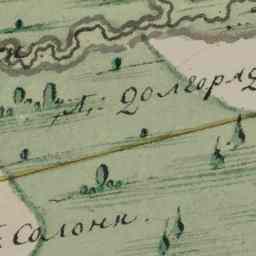 Л: Долгоряд
Солони.